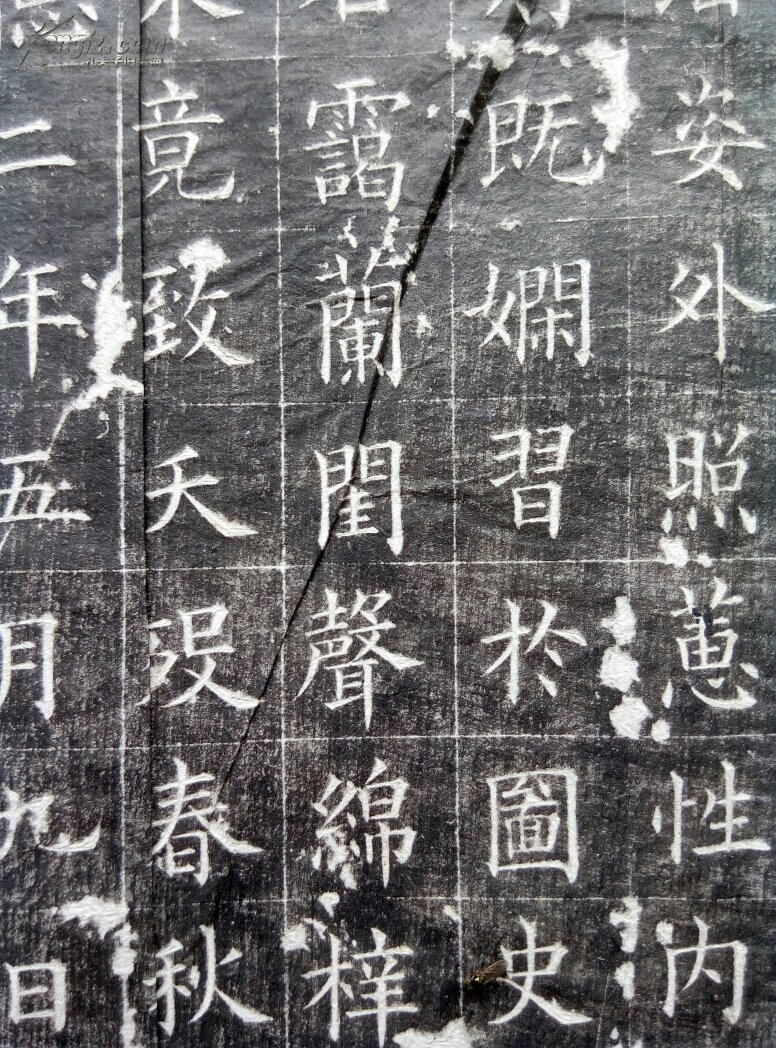 姿外照蕙性内
既嫻習於圖史
靄蘭閨聲綿梓
竟致夭殁春秋
二年五月九日